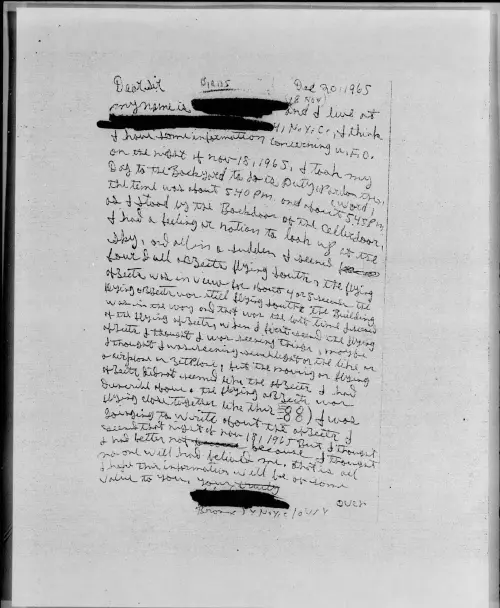 Dear Sir BIRDS Dec 20, 1965
(18 Nov)
my name is and I live at
N.Y.C., I think
I have some information concerning U.F.O.
on the night of nov-18, 1965, I took my
Dog to the Backyard to do is Duty (Pardon the
(word)
the time was about 5:40 P.m. and about 5:45 P.m.
as I stood by the Backdoor of the cellerdoor,
I had a feeling or notion to look up at the
sky, and all in a sudden I seened
four small obSects flying South, the flying
obSects was in view for about 4 or 5 second the
flying obSects wor still flying South & the Building
was in the way and that wor the last time I seened
of the flying obSects, when I first seened the flying
obSects I thought I wor seeing things, maybe
I thought I was seening sunlight or the like on
a airplane or JetPlane, but the moving or flying
obSects did not seemed like the obSects I had
Describe above. the flying obSects wor
flying close together like this 88) I was
goinging to write about the obSects I
seened that night of nov-18, 1965 But I thought
I had better not because I thought
no one will had belived me. that is all
I hope this information will be of some
value to you, your truly
over
Bronx N.Y.C.